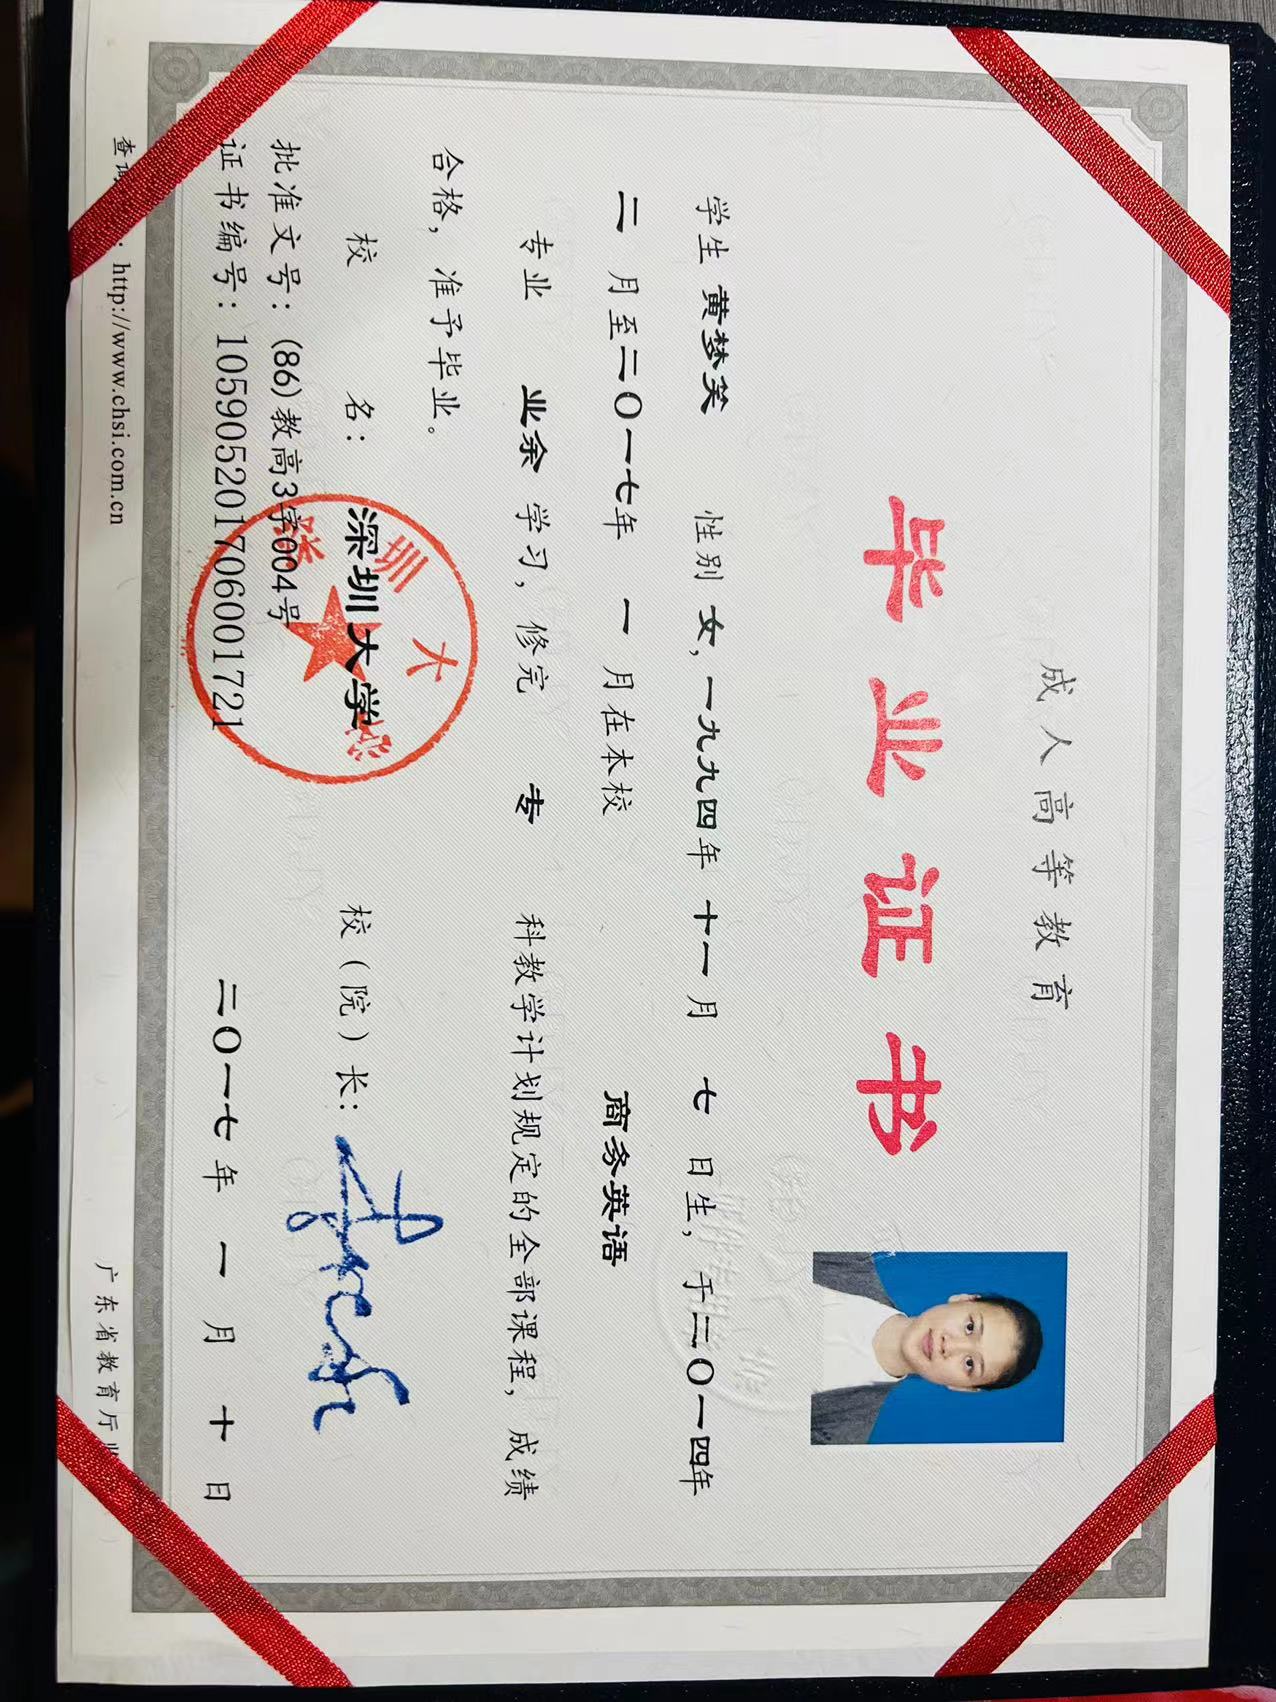 成人高等教育
毕业证书
学生 黄梦笑 性别 女，一九九四年 十一月 七 日生，于二〇一四年
二 月至二〇一七年 一 月在本校 商务英语
专业 业余 学习，修完 专 科教学计划规定的全部课程，成绩
合格，准予毕业。
校 名：深圳大学 校（院）长：
深圳大学
批准文号：(86)教高3字004号
证书编号：105905201706001721 二〇一七年 一 月 十 日
http://www.chsi.com.cn 广东省教育厅